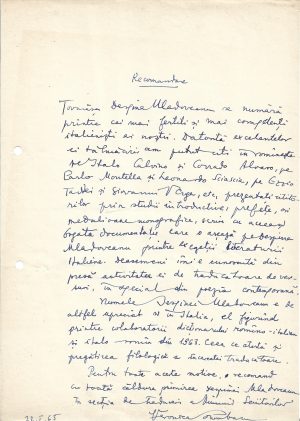 Recomandare
Tovarăşa Despina Mladoveanu se numără
printre cei mai fertili şi mai competenţi
italienişti ai noştri. Datorită excelentelor
ei tălmăciri am putut citi în româneşte
pe Italo Calvino şi Corrado Alvaro, pe
Carlo Montella şi Leonardo Sciascia, pe Ezio
Taddei şi Giovanni Verga, etc, prezentaţi citito-
rilor prin studii introductive, prefeţe, ori
medalioane monografice, scrise cu aceeaşi
bogată documentaţie care o aşează pe Despina
Mladoveanu printre exegeţii literaturii
italiene. Deasemeni îmi e cunoscută din
presă activitatea ei de traducătoare de ver-
suri, în special din poezia contemporană.
Numele Despinei Mladoveanu e de
altfel apreciat şi în Italia, el figurînd
printre colaboratorii dicţionarului romîno-italian
şi italo-romîn din 1963. Ceea ce atestă şi
pregătirea filologică a încercatei traducătoare.
Pentru toate aceste motive, o recomand
cu toată căldura primirea Despinei Mladoveanu
în secţia de traduceri a Uniunii Scriitorilor
Veronica Porumbacu